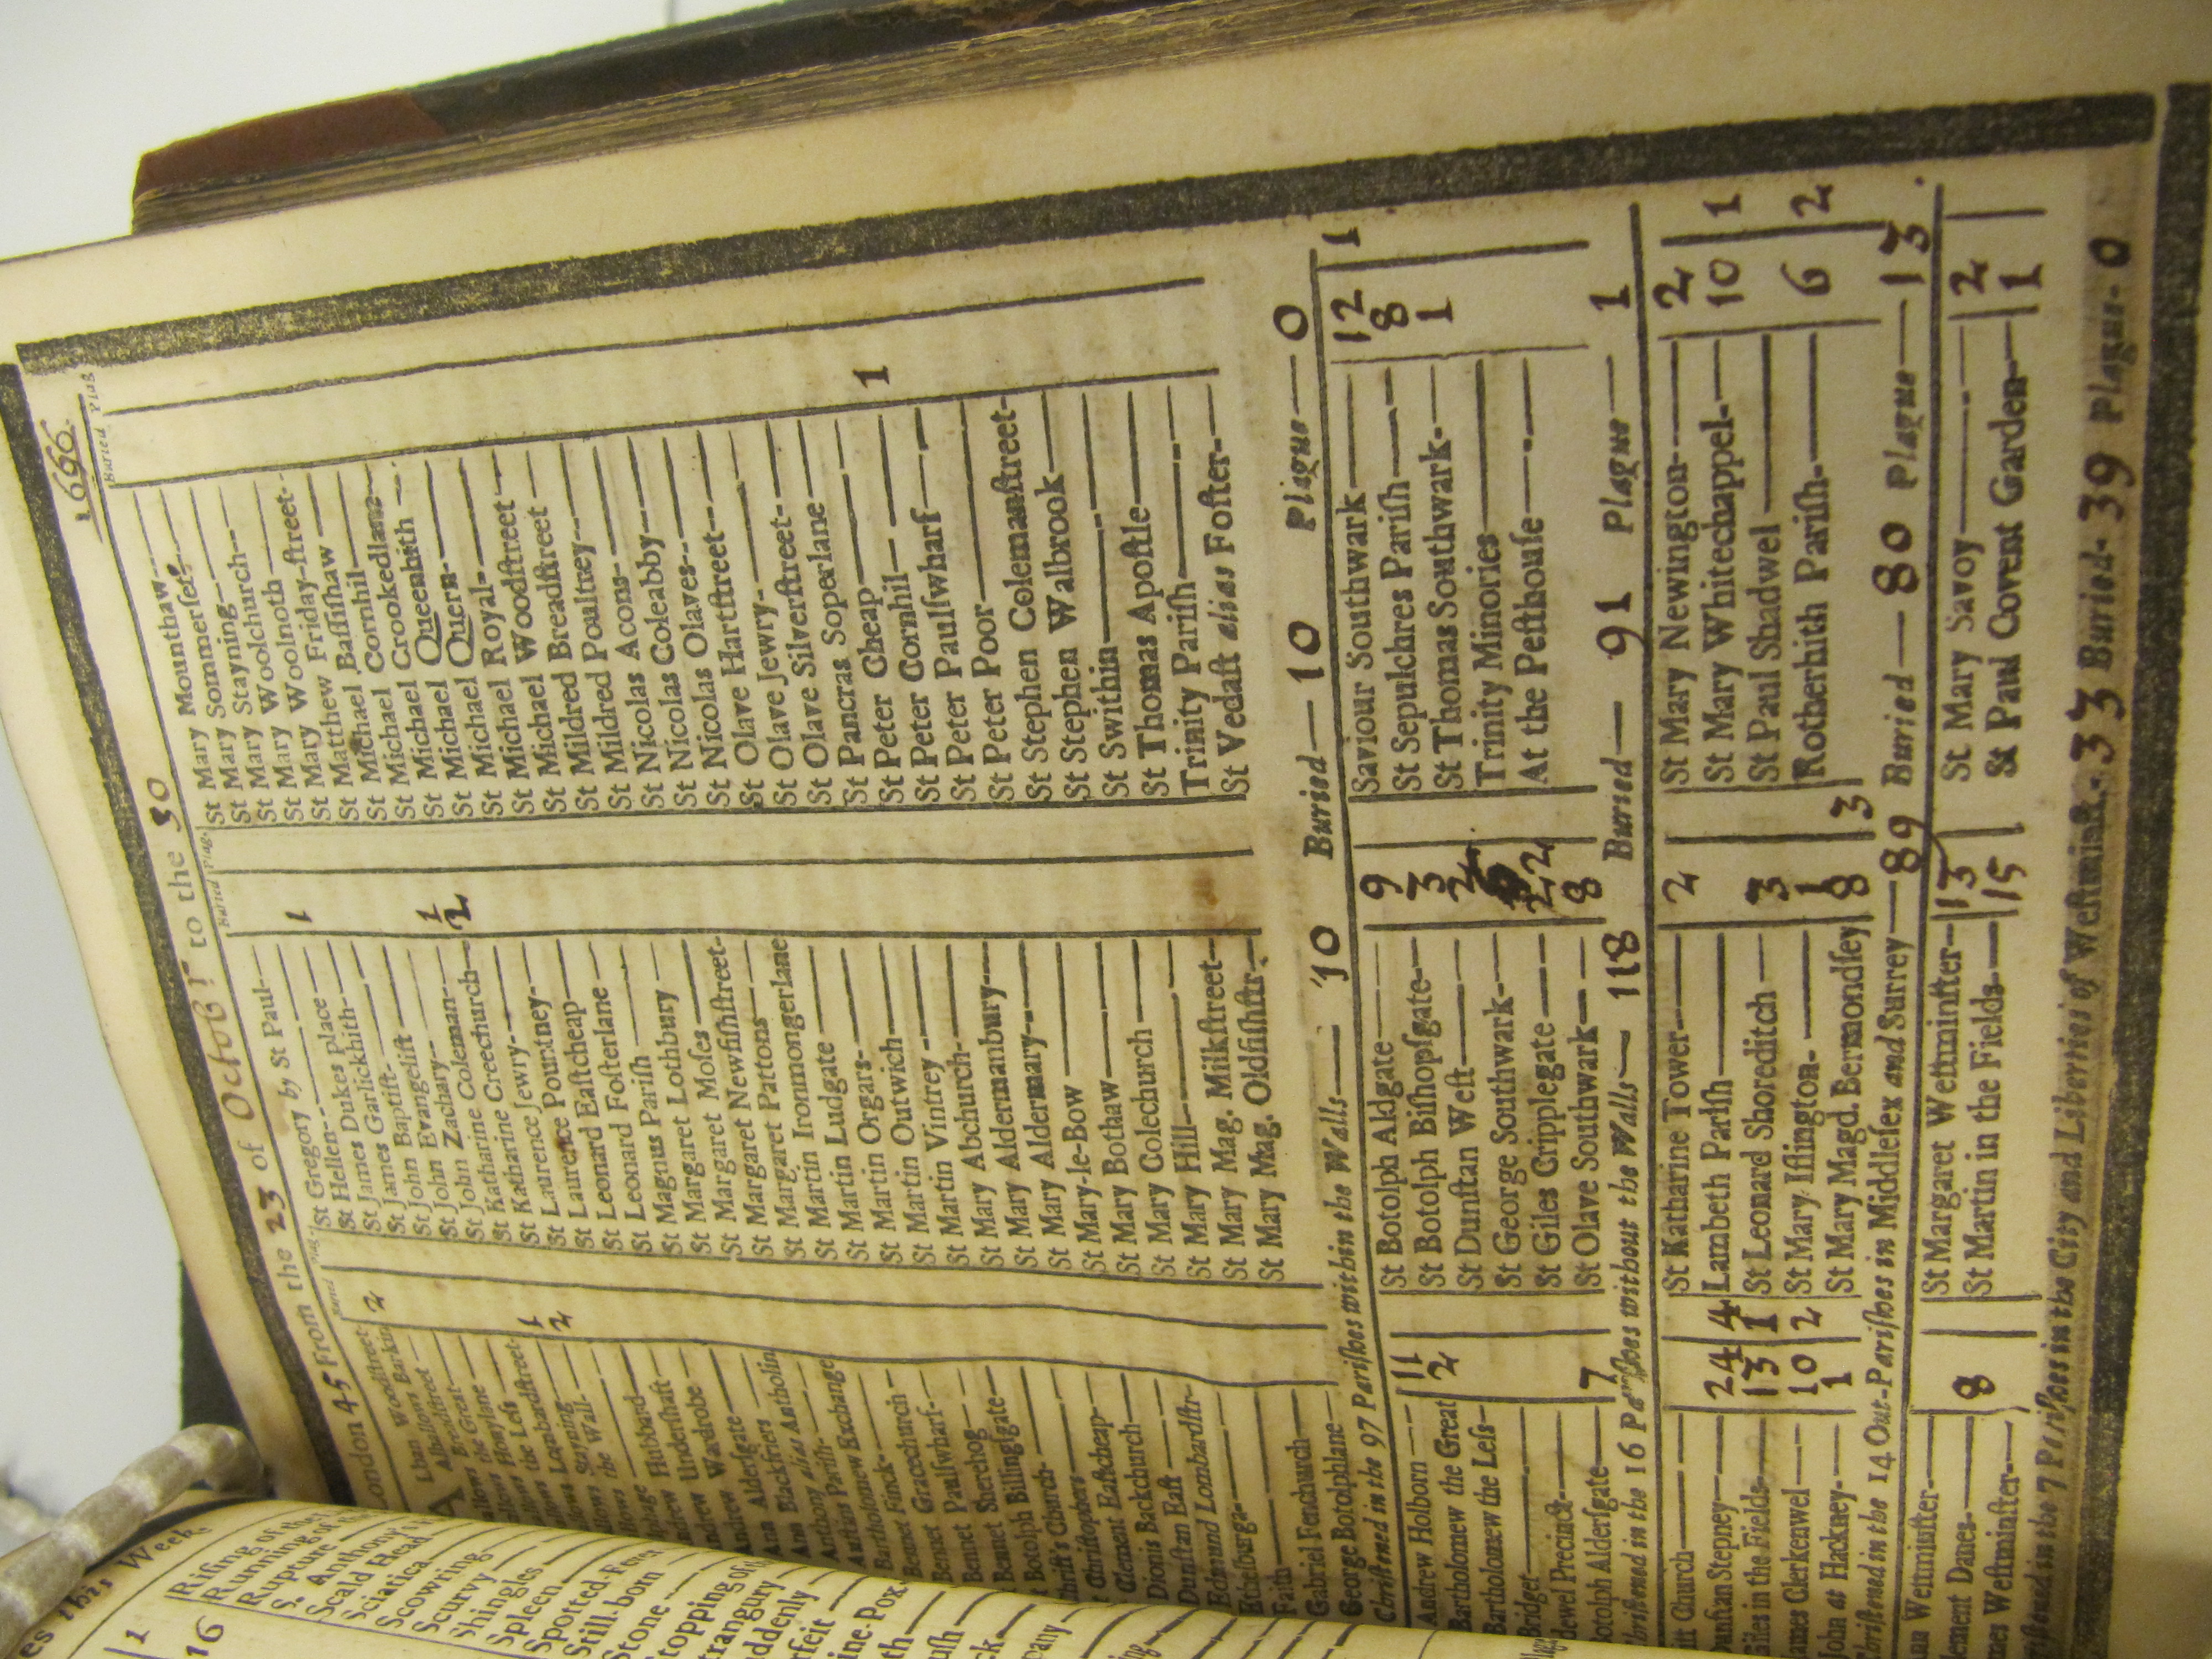 London 45 From the 23 of Octob! to the 30 1666.
Buried Plag.
Buried Plag.
Buried Plag
Woodstreet 2
Lhallows Barkin
Breadstreet
the Great
Honylane
the Less
Lombardstreet 1
Stayning 2
the Wall
Hubbard
Undershaft
Wardrobe
Aldersgate
Ann Blackfriers
Ann alias Antholin
Anthony Parish
Antins Parish
Bartholomew Exchange
Finck
Bennet Gracechurch
Bennet Paulswharf
Bennet Sherehog
Botolph Billingsgate
Christ's Church
Christophers
Clement Eastcheap
Dionis Backchurch
Dunstan East
Edmund Lombardstr
Ethelburga
Faith
Gabriel Fenchurch
George Botolphlane
St Gregory by St Paul
St Hellen
St James Dukes Place 1
St James Garlickhith
St John Baptist
St John Evangelist
St John Zachary
St John Coleman 1
St Katharine Creechurch 2
St Katharine Jewry
St Laurence Pountney
St Leonard Eastcheap
St Leonard Fosterlane
St Magnus Parish
St Margaret Lothbury
St Margaret Moses
St Margaret Newfishstreet
St Margaret Pattons
St Martin Ironmongerlane
St Martin Ludgate
St Martin Orgars
St Martin Outwich
St Martin Vintrey
St Mary Abchurch
St Mary Aldermanbury
St Mary Aldermary
St Mary-le-Bow
St Mary Bothaw
St Mary Colechurch
St Mary Hill
St Mary Mag. Milkstreet
St Mary Mag. Oldfishstr
St Mary Mounthaw
St Mary Sommerset
St Mary Stayning
St Mary Woolchurch
St Mary Woolnoth
St Mary Friday-street
St Matthew Bassishaw
St Michael Cornhil
St Michael Crookedlane
St Michael Queenhith
St Michael Quern
St Michael Royal
St Michael Woodstreet
St Mildred Breadstreet
St Mildred Poultrey
St Nicolas Acons
St Nicolas Coleabby
St Nicolas Olaves
St Olave Hartstreet
St Olave Jewry
St Olave Silverstreet
St Pancras Soperlane
St Peter Cheap 1
St Peter Cornhil
St Peter Paulswharf
St Peter Poor
St Stephen Colemanstreet
St Stephen Walbrook
St Swithin
St Thomas Apostle
Trinity Parish
St Vedast alias Foster
Christned in the 97 Parishes within the Walls 10 Buried 10 Plague 0
Andrew Holborn 11
Bartholomew the Great 2
Bartholomew the Less
Bridget
dewel Precinct
Botolph Aldersgate 7
St Botolph Aldgate 9
St Botolph Bishopsgate 3
St Dunstan West 2
St George Southwark
St Giles Cripplegate 22
St Olave Southwark 8
Saviour Southwark 12 1
St Sepulchres Parish 8
St Thomas Southwark 1
Trinity Minories
At the Pesthouse
Christned in the 16 Parishes without the Walls 118 Buried 91 Plague 1
ist Church
unstan Stepney 24 4
iles in the Fields 13 1
ames Clerkenwel 10 2
John at Hackney 1
St Katharine Tower 2
Lambeth Parish
St Leonard Shoreditch 3
St Mary Islington 1
St Mary Magd. Bermondsey 8 3
St Mary Newington 2
St Mary Whitechappel 10 1
St Paul Shadwel
Rotherhith Parish 6 2
Christned in the 14 Out-Parishes in Middlesex and Surrey 89 Buried 80 Plague 13.
Westminster
lement Danes 8
mes Westminster
St Margaret Westminster 13
St Martin in the Fields 15
St Mary Savoy 2
St Paul Covent Garden 1
ristned in the 7 Parishes in the City and Liberties of Westminst. 33 Buried 39 Plague 0
es this Week
1
16
Rising of the
Running of the
Rupture
S. Anthony's
Scald Head
Sciatica
Scowring
Scurvy
Shingles
Spleen
Spotted Fever
Still-born
Stone
Stopping of th
trangury
uddenly
rfeit
ine-Pox